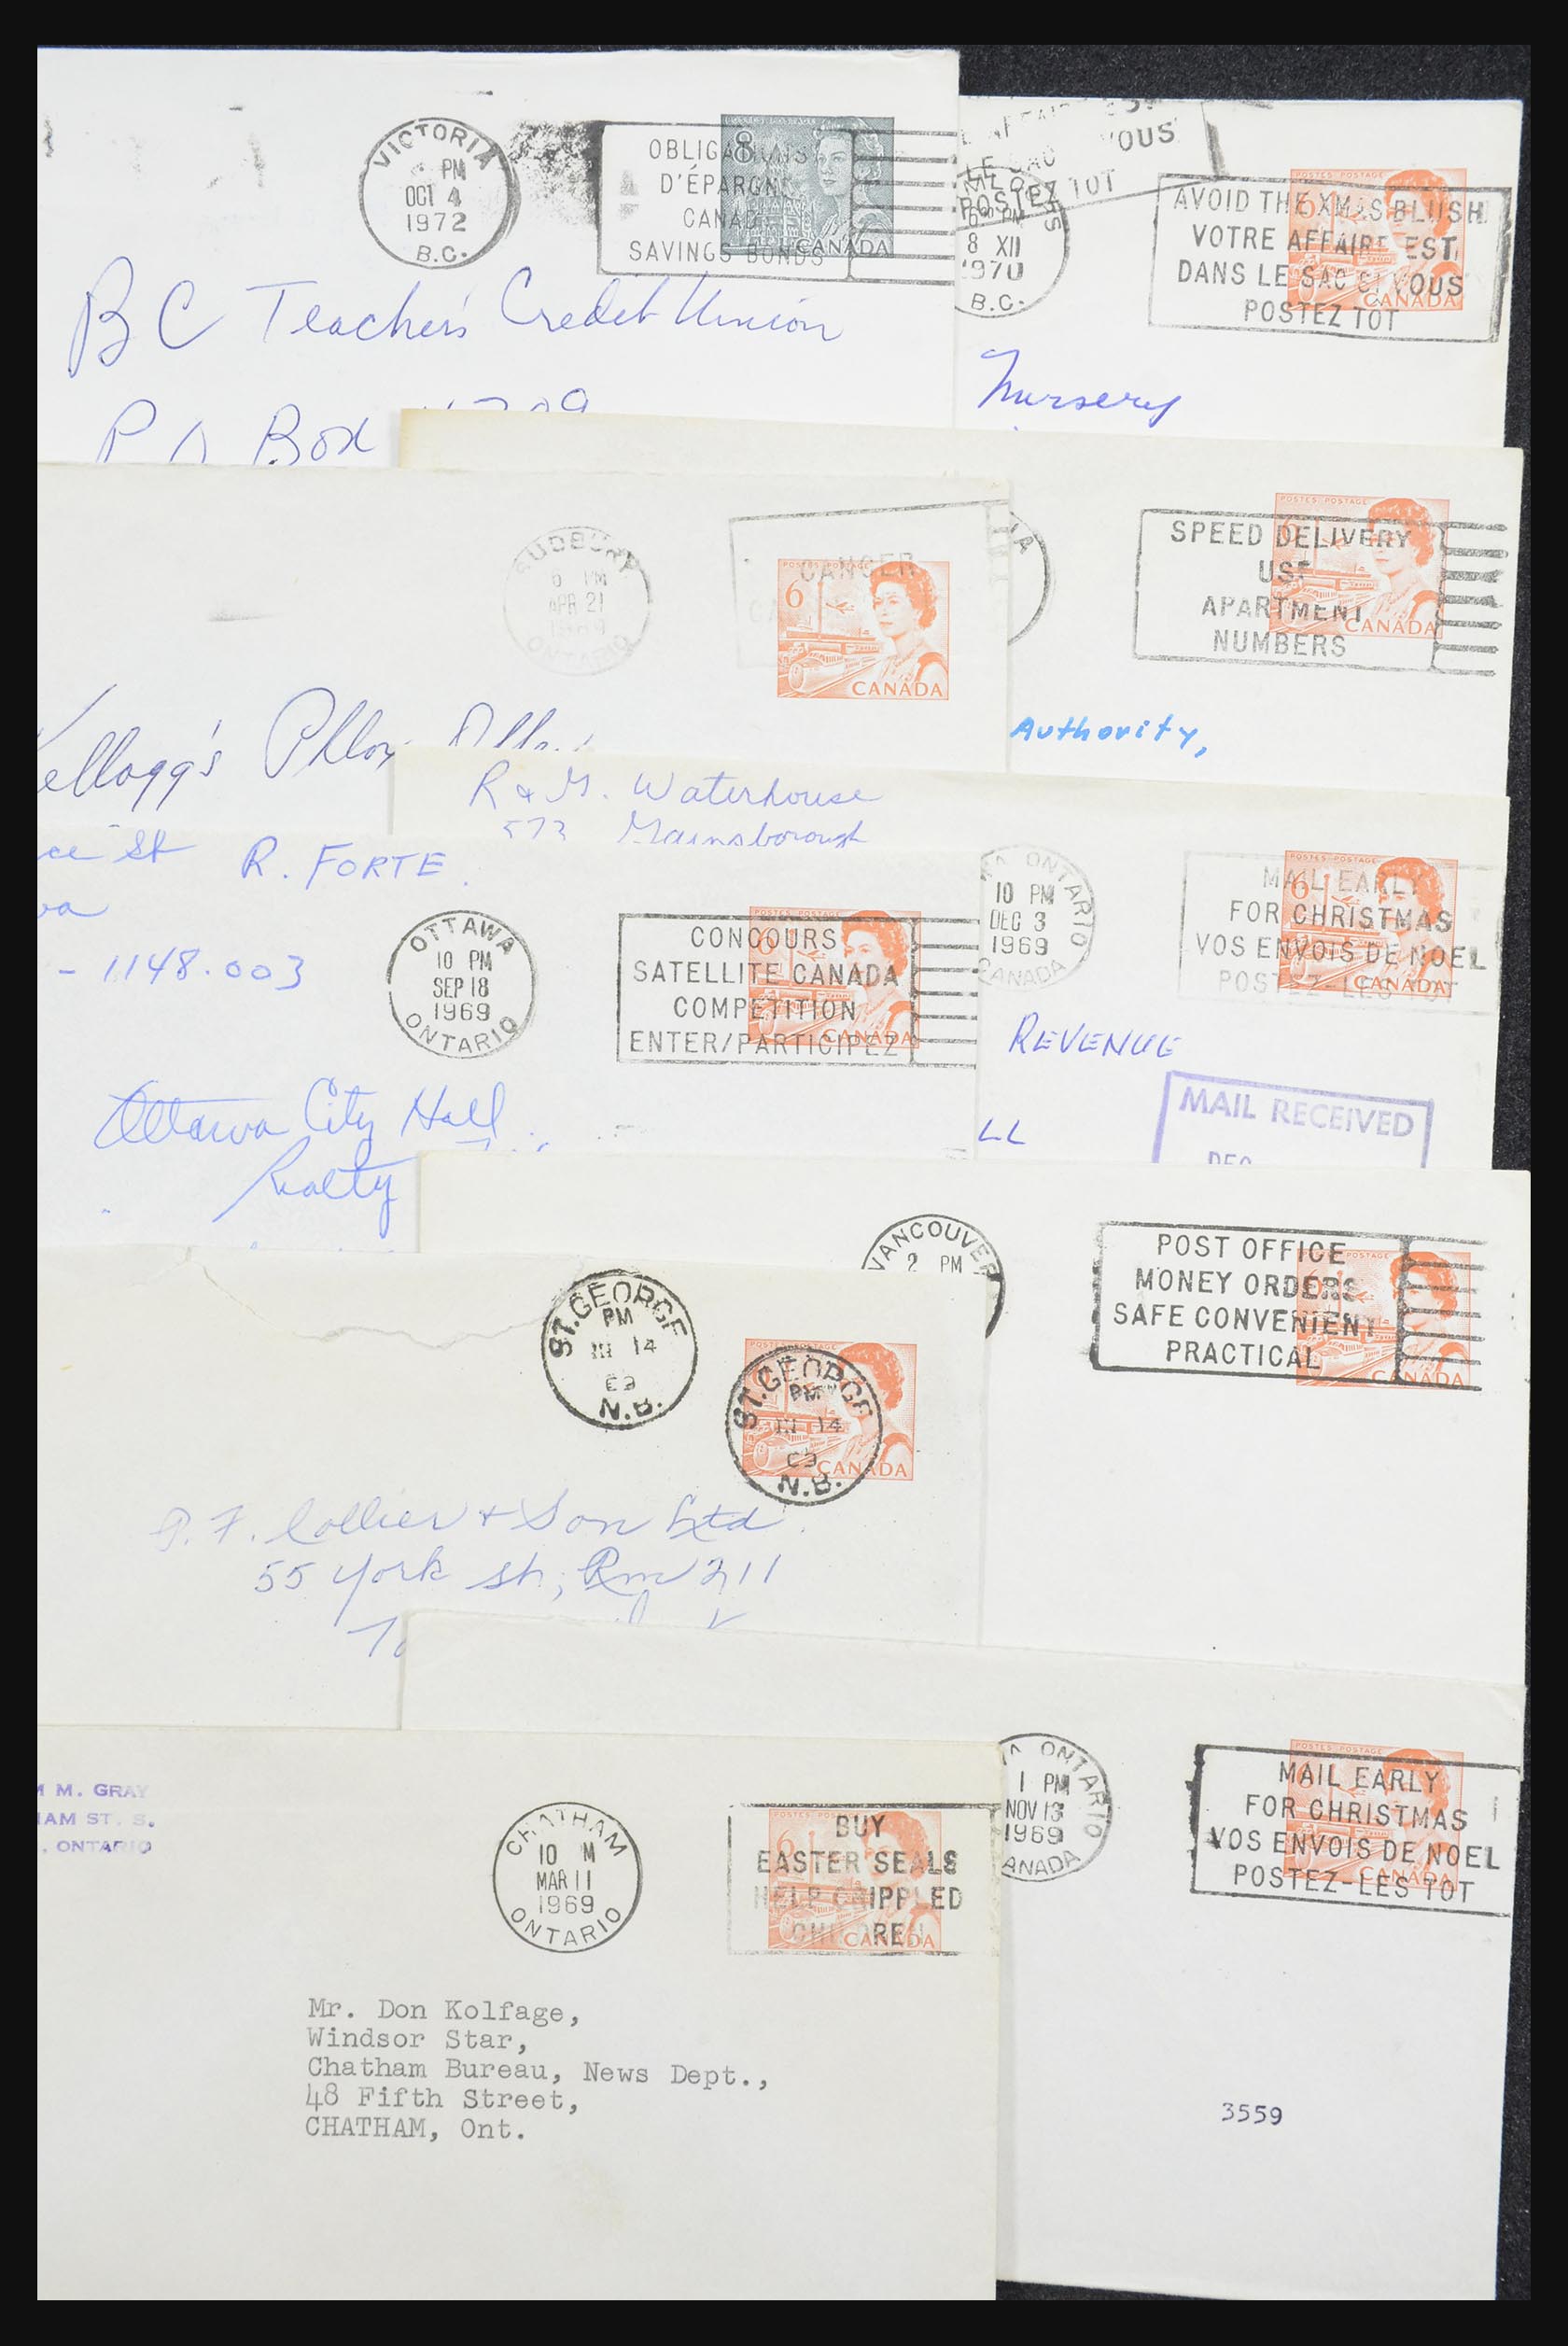 VICTORIA
PM
OCT 4
1972
B.C.
OBLIGATIONS
D'ÉPARGNE
CANADA
SAVINGS BONDS
8
CANADA
B C Teacher's Credit Union
P O Box
VOUS
LE SAC
POSTEZ TOT
8 XII
1970
B.C.
AVOID THE XMAS BLUSH
VOTRE AFFAIRE EST
DANS LE SAC SI VOUS
POSTEZ TOT
6
CANADA
Nursery
SUDBURY
6 PM
APR 21
1969
ONTARIO
CANCER
POSTES POSTAGE
6
CANADA
Kellogg's
POSTES POSTAGE
SPEED DELIVERY
USE
APARTMENT
NUMBERS
6
CANADA
Authority,
R & M. Waterhouse
573 Mainsborough
ce St
R. FORTE.
- 1148.003
OTTAWA
10 PM
SEP 18
1969
ONTARIO
POSTES POSTAGE
CONCOURS
SATELLITE CANADA
COMPETITION
ENTER/PARTICIPEZ
6
CANADA
Ottawa City Hall
Realty
ONTARIO
10 PM
DEC 3
1969
CANADA
POSTES POSTAGE
MAIL EARLY
FOR CHRISTMAS
VOS ENVOIS DE NOEL
POSTEZ-LES TOT
6
CANADA
REVENUE
MAIL RECEIVED
DEC
LL
VANCOUVER
2 PM
POST OFFICE
MONEY ORDERS
SAFE CONVENIENT
PRACTICAL
POSTAGE
6
CANADA
ST. GEORGE
PM
III 14
69
N.B.
ST. GEORGE
PM
III 14
69
N.B.
CANADA
P. F. Collier & Son Ltd.
55 York St, Rm 211
ONTARIO
1 PM
NOV 13
1969
CANADA
POSTES POSTAGE
MAIL EARLY
FOR CHRISTMAS
VOS ENVOIS DE NOEL
POSTEZ-LES TOT
6
CANADA
3559
M. GRAY
HAM ST. S.
, ONTARIO
CHATHAM
10 M
MAR 11
1969
ONTARIO
POSTES POSTAGE
BUY
EASTER SEALS
HELP CRIPPLED
CHILDREN
6
CANADA
Mr. Don Kolfage,
Windsor Star,
Chatham Bureau, News Dept.,
48 Fifth Street,
CHATHAM, Ont.